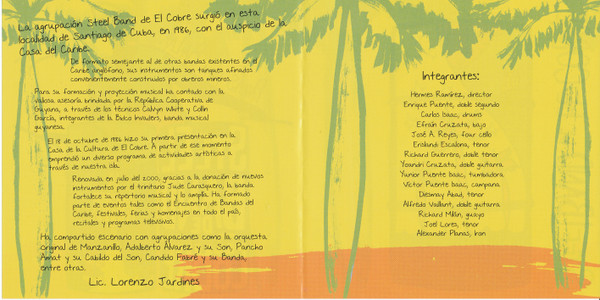 La agrupación Steel Band de El Cobre surgió en esta
localidad de Santiago de Cuba, en 1986, con el auspicio de la
Casa del Caribe.
De formato semejante al de otras bandas existentes en el
Caribe anglófono, sus instrumentos son tanques afinados
convenientemente construidos por obreros mineros.
Para su formación y proyección musical ha contado con la
valiosa asesoría brindada por la República Cooperativa de
Guyana, a través de los técnicos Calvyn White y Collin
García, integrantes de la Bidco Invaders, banda musical
guyanesa.
El 18 de octubre de 1986 hizo su primera presentación en la
Casa de la Cultura de El Cobre. A partir de ese momento
emprendió un diverso programa de actividades artísticas a
través de nuestra isla.
Renovada, en julio del 2000, gracias a la donación de nuevos
instrumentos por el trinitario Jude Carasquero, la banda
fortalece su repertorio musical y lo amplía. Ha formado
parte de eventos tales como el Encuentro de Bandas del
Caribe, festivales, ferias y homenajes en todo el país,
recitales y programas televisivos.
Ha compartido escenario con agrupaciones como la orquesta
original de Manzanillo, Adalberto Álvarez y su Son, Pancho
Amat y su Cabildo del Son, Candido Fabré y su Banda,
entre otras.
Lic. Lorenzo Jardines
Integrantes:
Hermes Ramírez, director
Enrique Puente, doble segundo
Carlos Isaac, drums
Efraín Cruzata, bajo
José A. Reyes, four cello
Eraliundi Escalona, tenor
Richard Guerrero, doble tenor
Yoandri Cruzata, doble guitarra
Yunior Puente Isaac, tumbadora
Víctor Puente Isaac, campana
Diesmay Axud, tenor
Alfredo Vaillant, doble guitarra
Richard Millin, guayo
Joel Lores, tenor
Alexander Planas, iron